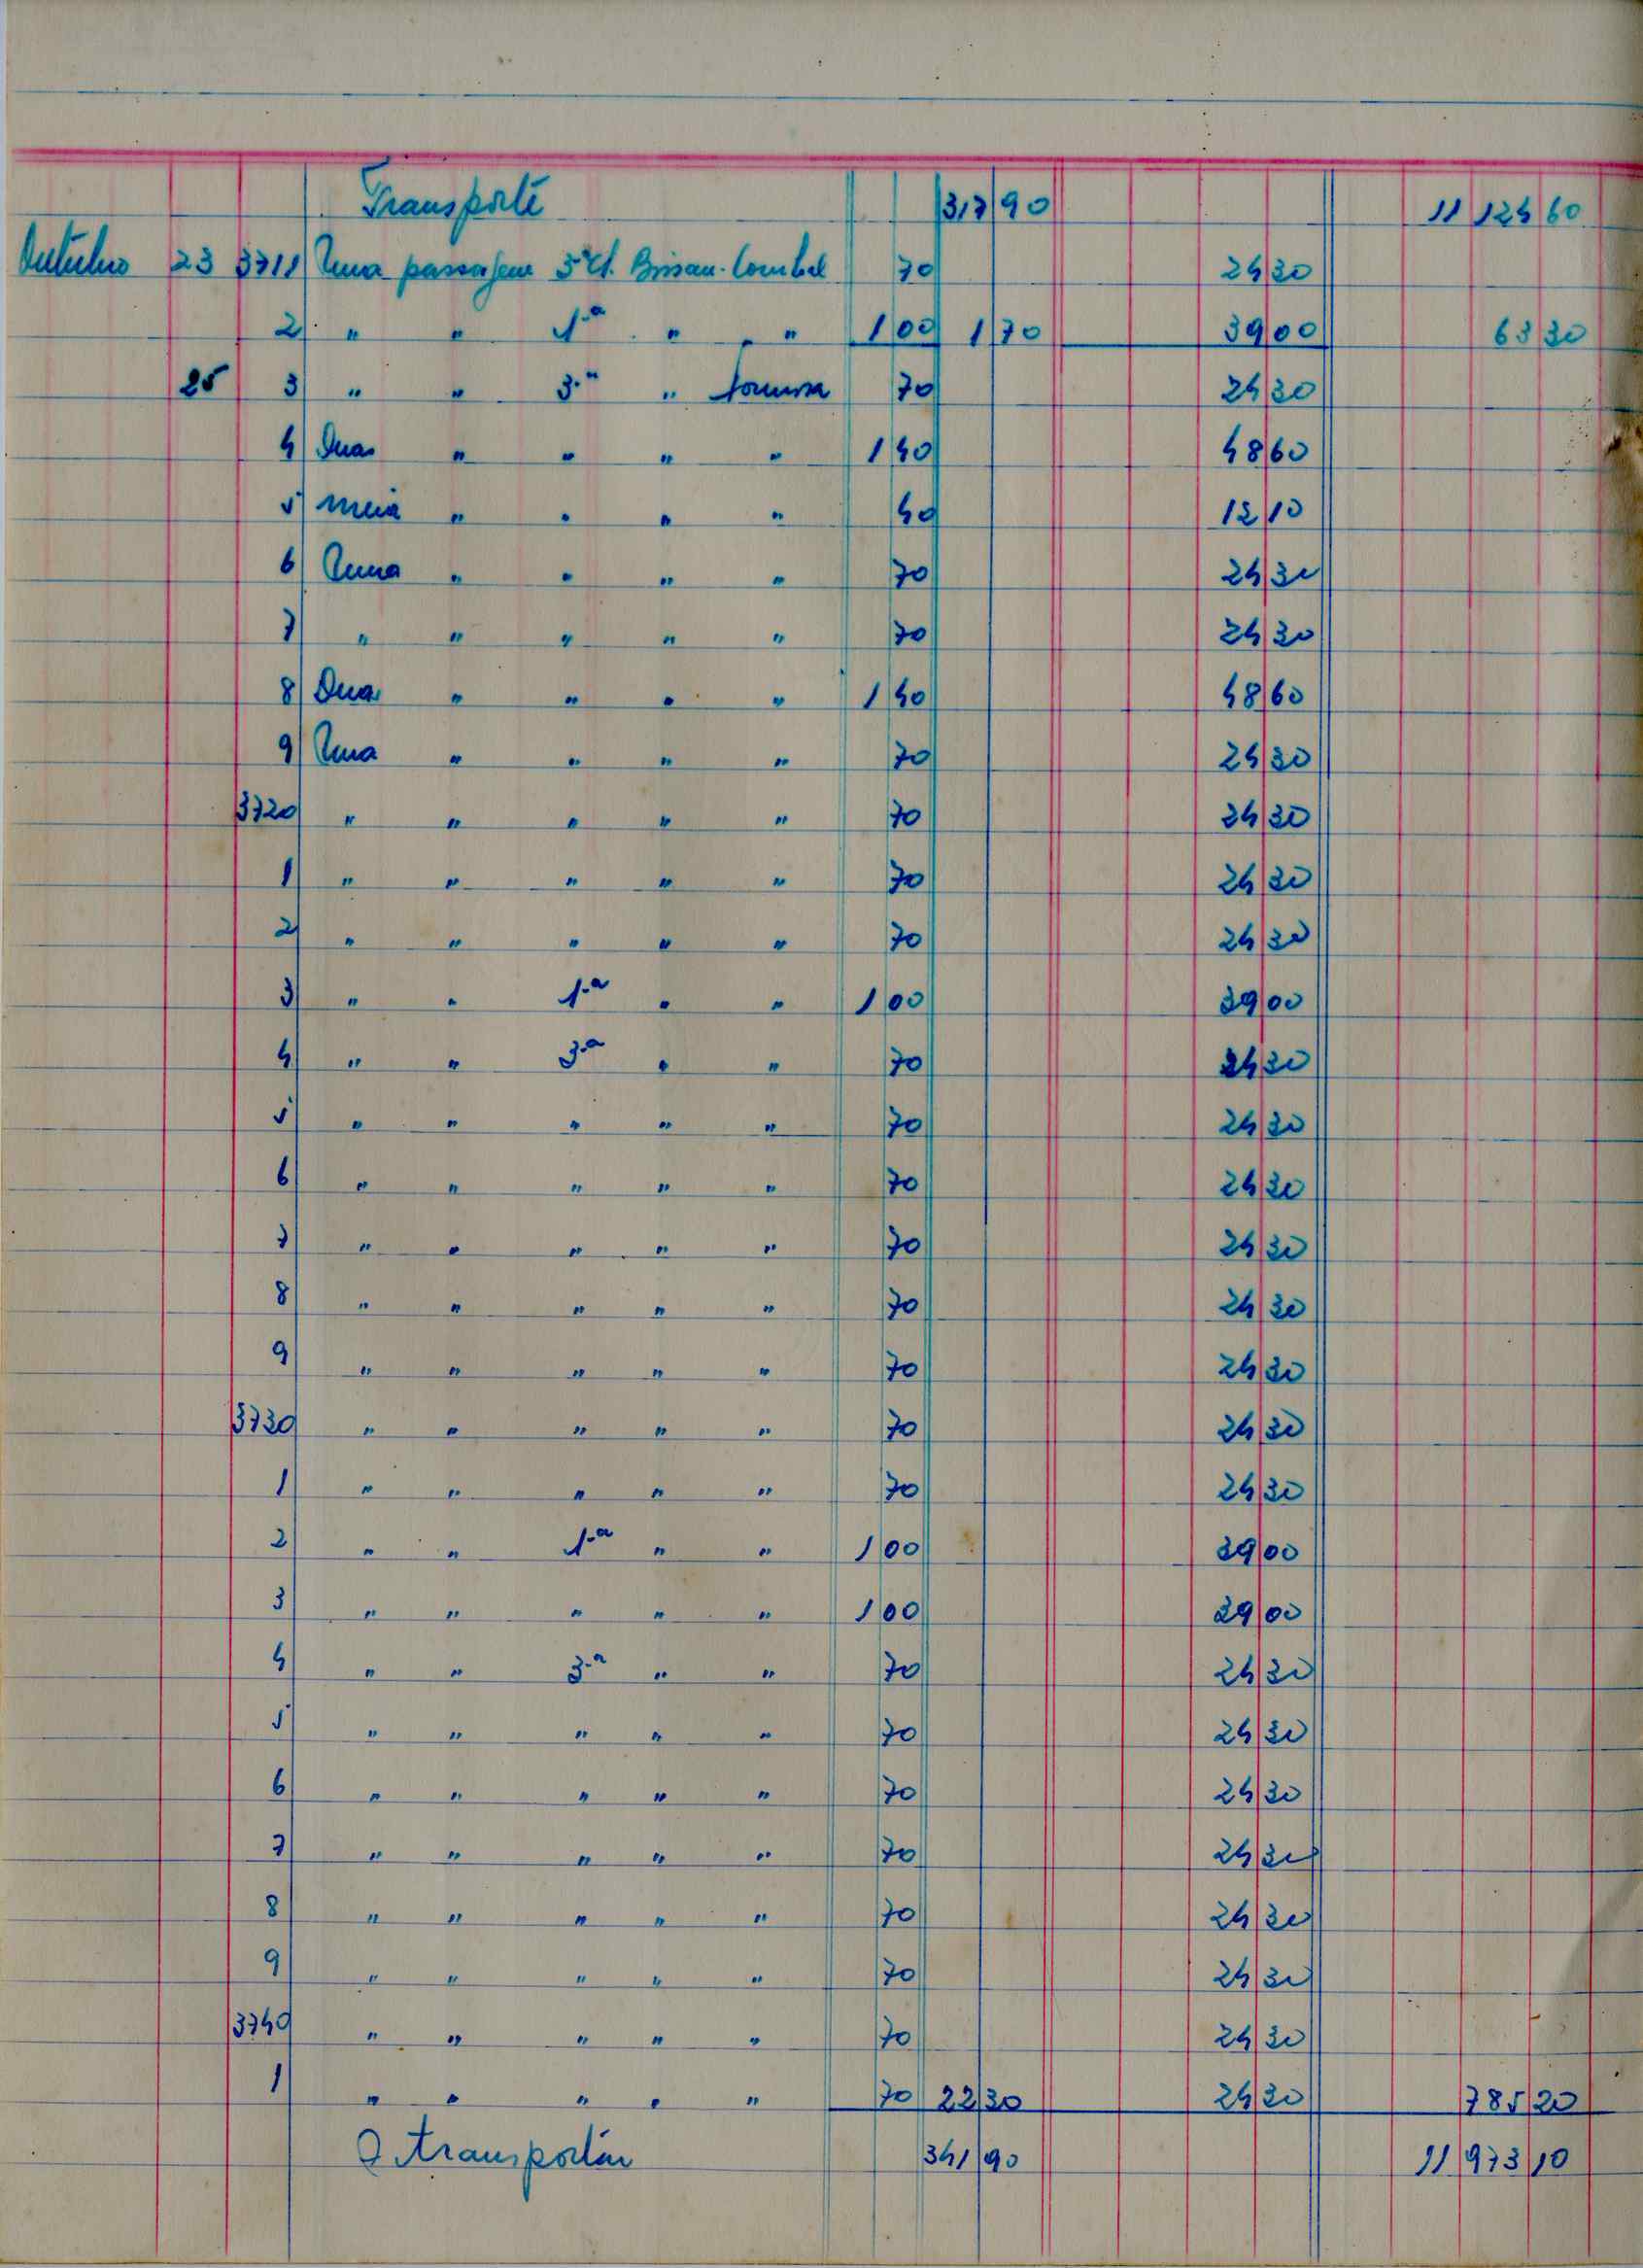 Transporte 317 90 11 124 60
Outubro 23 3711 Uma passagem 3ª cl. Bissau- 70 24 30
2 " " 1.ª " " 1 00 1 70 39 00 63 30
25 3 " " 3.ª " 70 24 30
4 Duas " " " " 1 40 48 60
5 meia " " " " 40 12 10
6 Uma " " " " 70 24 30
7 " " " " " 70 24 30
8 Duas " " " " 1 40 48 60
9 Uma " " " " 70 24 30
3720 " " " " " 70 24 30
1 " " " " " 70 24 30
2 " " " " " 70 24 30
3 " " 1.ª " " 1 00 39 00
4 " " 3.ª " " 70 24 30
5 " " " " " 70 24 30
6 " " " " " 70 24 30
7 " " " " " 70 24 30
8 " " " " " 70 24 30
9 " " " " " 70 24 30
3730 " " " " " 70 24 30
1 " " " " " 70 24 30
2 " " 1.ª " " 1 00 39 00
3 " " " " " 1 00 39 00
4 " " 3.ª " " 70 24 30
5 " " " " " 70 24 30
6 " " " " " 70 24 30
7 " " " " " 70 24 30
8 " " " " " 70 24 30
9 " " " " " 70 24 30
3740 " " " " " 70 24 30
1 " " " " " 70 22 30 24 30 785 20
A transportar 341 90 11 973 10